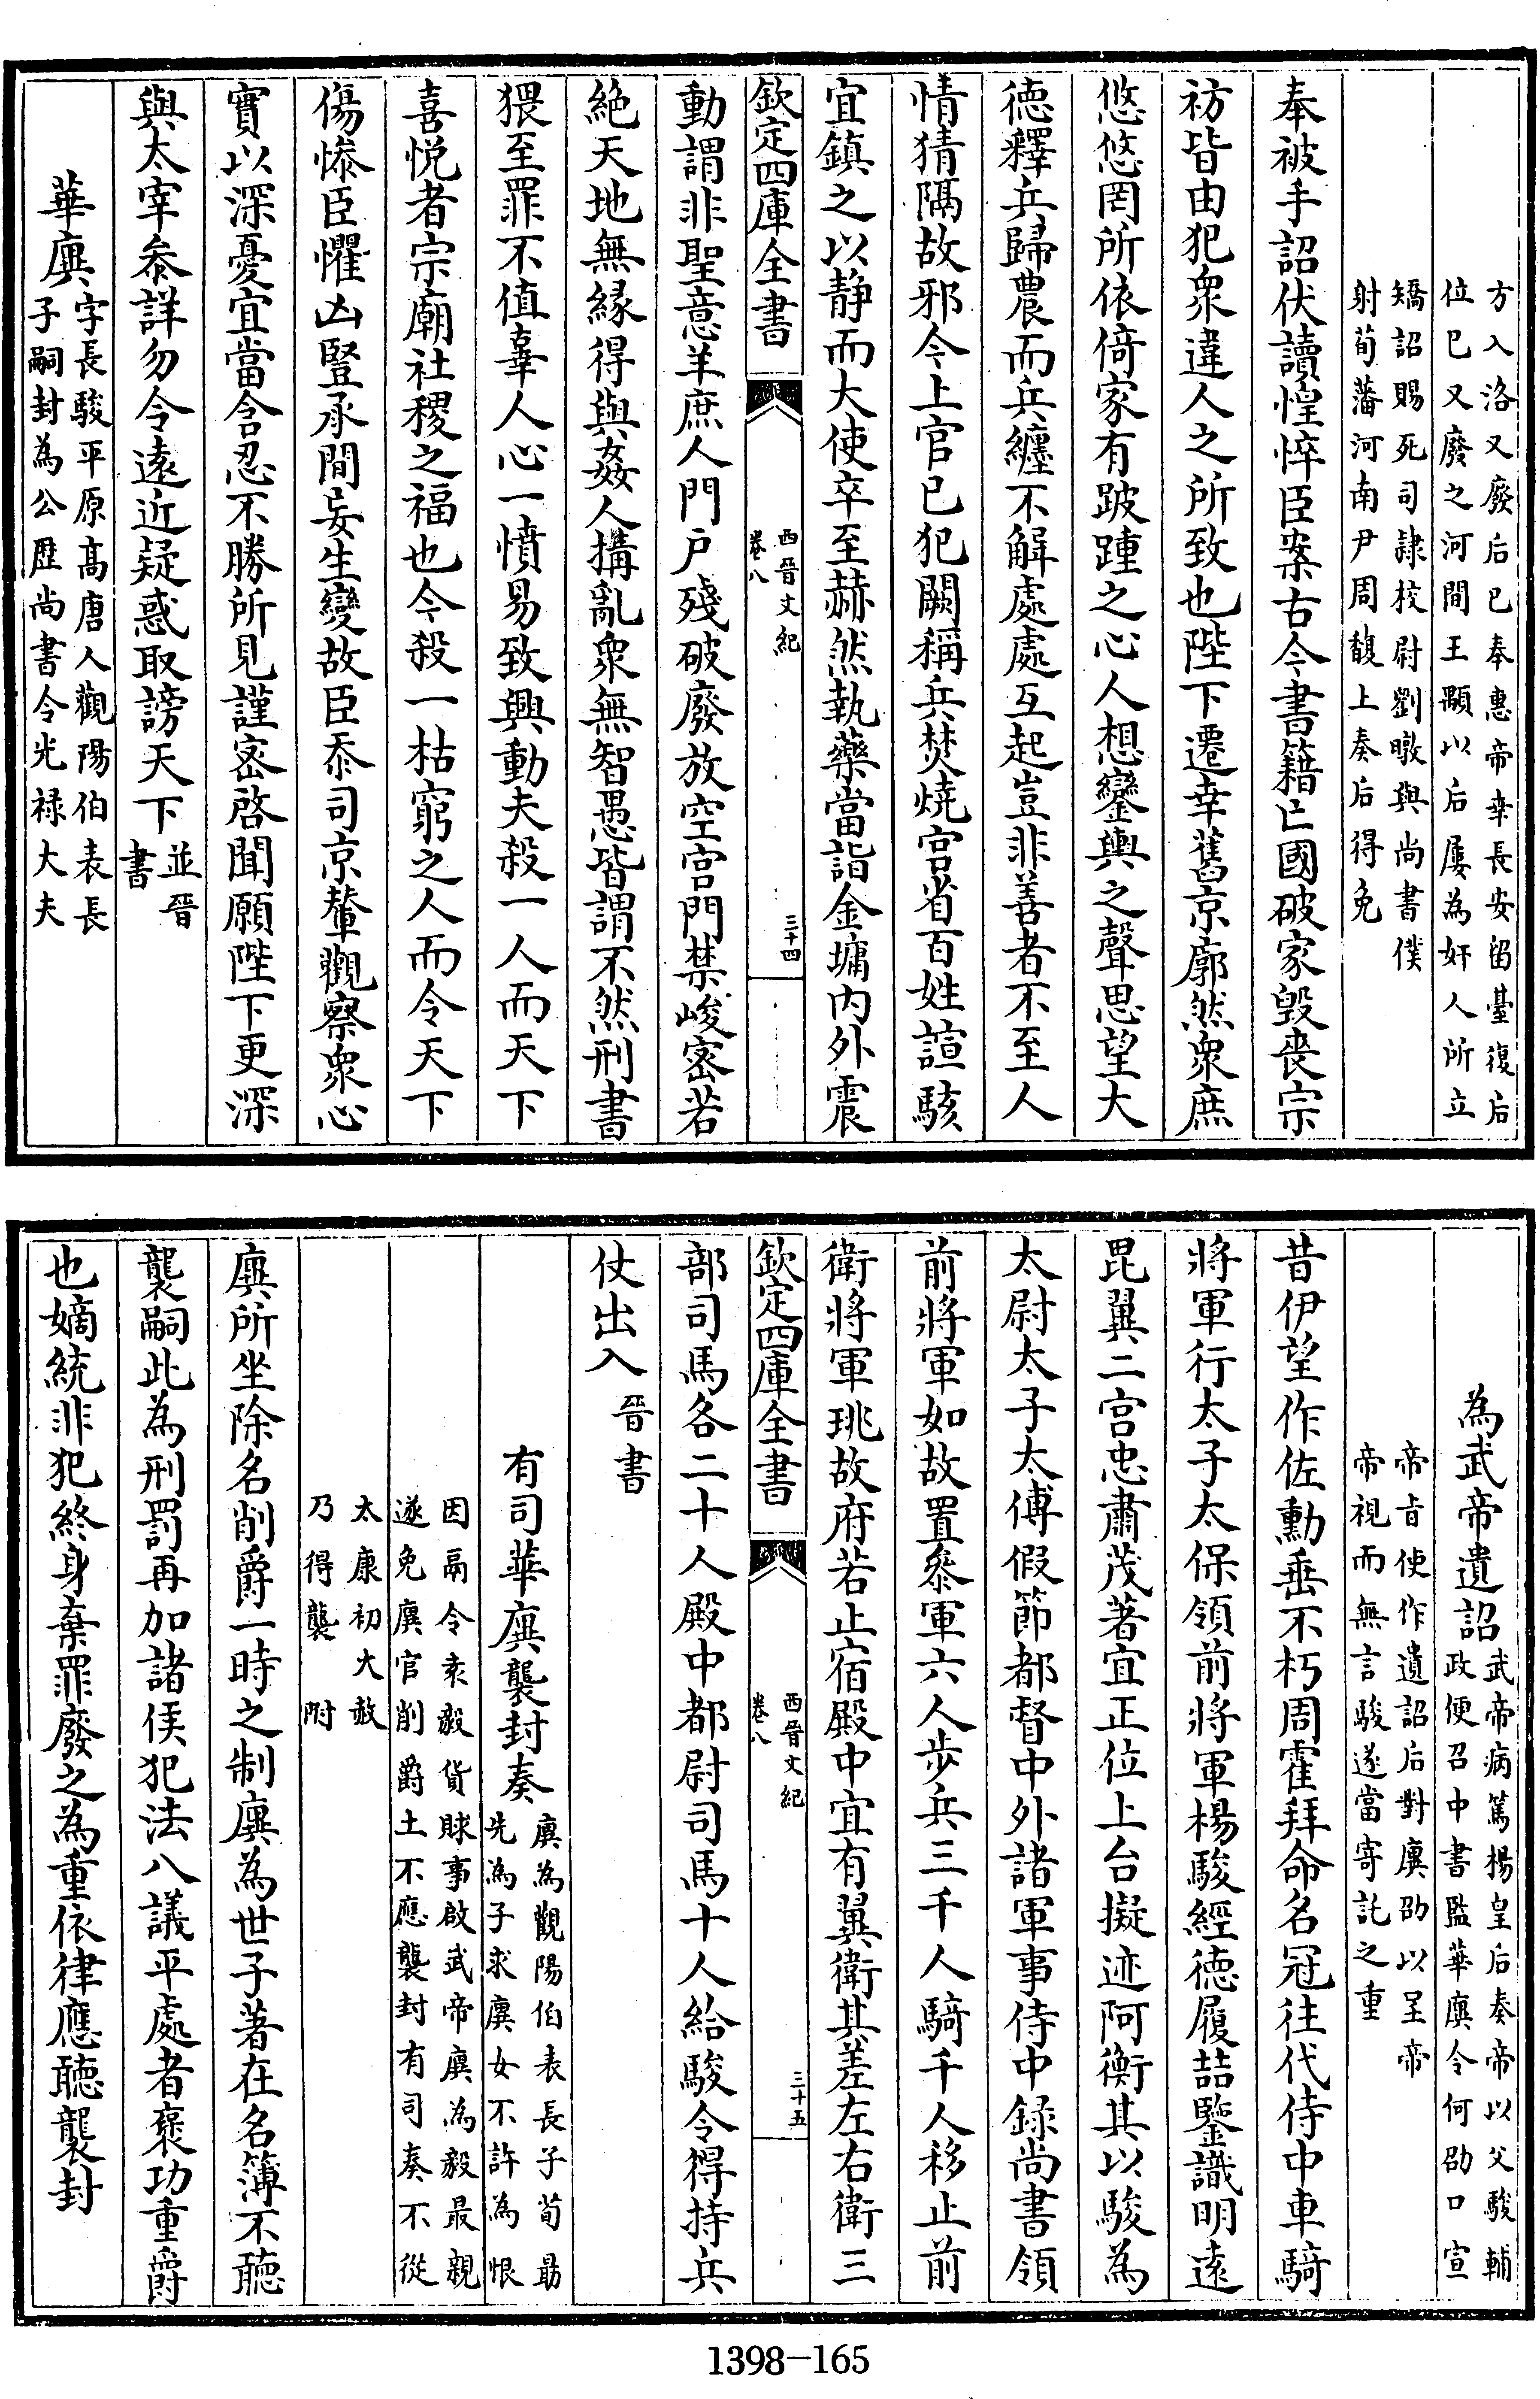 方入洛又廢后已奉惠帝幸長安留臺復后
位已又廢之河間王顒以后屢為奸人所立
矯詔賜死司隷校尉劉暾與尚書僕
射荀藩河南尹周馥上奏后得免
奉被手詔伏讀惶悴臣案古今書籍亡國破家毀喪宗
祊皆由犯衆違人之所致也陛下遷幸舊京廓然衆庶
悠悠罔所依倚家有跛踵之心人想鑾輿之聲思望大
德釋兵歸農而兵纏不解處處互起豈非善者不至人
情猜隔故邪今上官已犯闕稱兵焚燒宫省百姓諠駭
宜鎮之以靜而大使卒至赫然執藥當詣金墉内外震
欽定四庫全書
西晉文紀
卷八
三十四
動謂非聖意羊庶人門户殘破廢放空宫門禁峻密若
絶天地無緣得與姦人搆亂衆無智愚皆謂不然刑書
猥至罪不值辜人心一憤易致興動夫殺一人而天下
喜悦者宗廟社稷之福也今殺一枯窮之人而令天下
傷慘臣懼凶豎承間妄生變故臣忝司京輦觀察衆心
實以深憂宜當含忍不勝所見謹密啓聞願陛下更深
與太宰叅詳勿令遠近疑惑取謗天下並晉
書
華廙字長駿平原髙唐人觀陽伯表長
子嗣封為公歴尚書令光禄大夫
為武帝遺詔武帝病篤楊皇后奏帝以父駿輔
政便召中書監華廙令何劭口宣
帝旨使作遺詔后對廙劭以呈帝
帝視而無言駿遂當寄託之重
昔伊望作佐勳垂不朽周霍拜命名冠往代侍中車騎
將軍行太子太保領前將軍楊駿經德履喆鑒識明遠
毘翼二宫忠肅茂著宜正位上台擬迹阿衡其以駿為
太尉太子太傅假節都督中外諸軍事侍中録尚書領
前將軍如故置叅軍六人步兵三千人騎千人移止前
衛將軍珧故府若止宿殿中宜有翼衛其差左右衛三
欽定四庫全書
西晉文紀
卷八
三十五
部司馬各二十人殿中都尉司馬十人給駿令得持兵
仗出入晉書
有司華廙襲封奏廙為觀陽伯表長子荀勗
先為子求廙女不許為恨
因鬲令袁毅貨賕事啟武帝廙為毅最親
遂免廙官削爵土不應襲封有司奏不從
太康初大赦
乃得襲附
廙所坐除名削爵一時之制廙為世子著在名簿不聽
襲嗣此為刑罰再加諸侯犯法八議平處者褒功重爵
也嫡統非犯終身棄罪廢之為重依律應聽襲封
1398-165